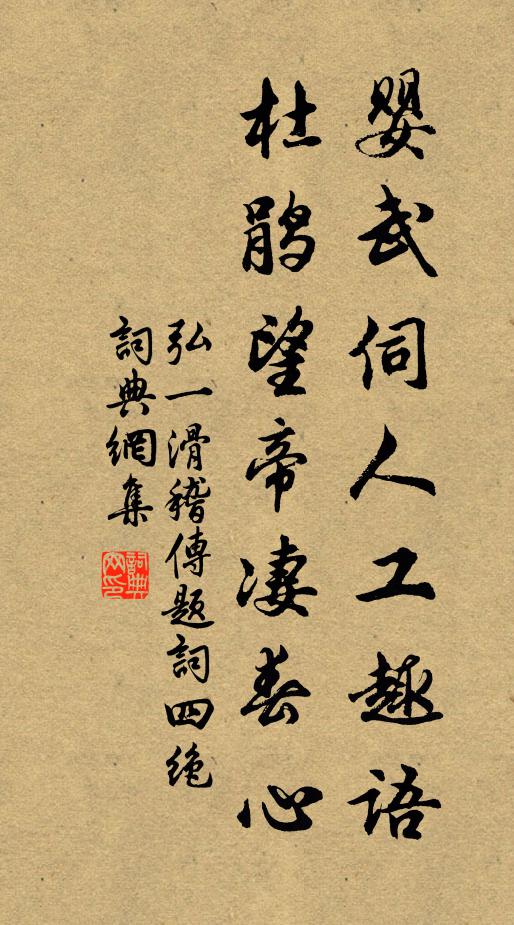 嬰武伺人工趣語
杜鹃望帝凄春心
弘一滑稽傳題詞四絶
詞典網集
詞典網印